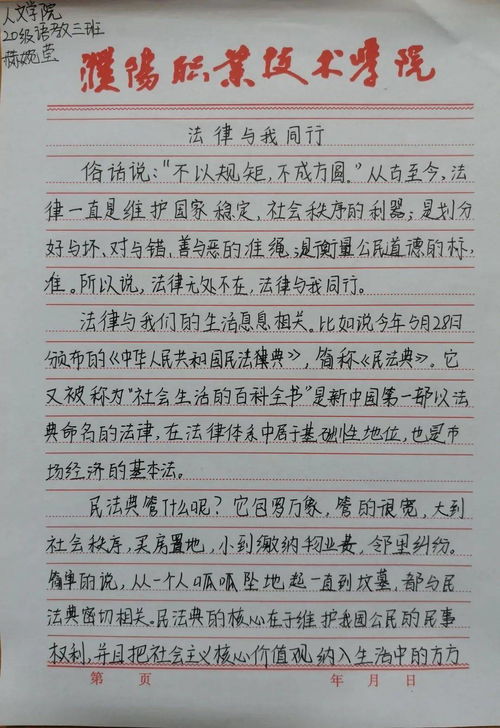 人文学院
20级语教三班
濮阳职业技术学院
法律与我同行
俗话说:“不以规矩,不成方圆。”从古至今,法
律一直是维护国家稳定,社会秩序的利器;是划分
好与坏、对与错、善与恶的准绳,是衡量公民道德的标
准。所以说,法律无处不在,法律与我同行。
法律与我们的生活息息相关。比如说今年5月28日
颁布的《中华人民共和国民法典》,简称《民法典》。它
又被称为“社会生活的百科全书”是新中国第一部以法
典命名的法律,在法律体系中居于基础性地位,也是市
场经济的基本法。
民法典管什么呢?它包罗万象,管的很宽,大到
社会秩序,买房置地,小到缴纳物业费,邻里纠纷。
简单的说,从一个人呱呱坠地起一直到坟墓,都与民
法典密切相关。民法典的核心在于维护我国公民的民事
权利,并且把社会主义核心价值观纳入生活中的方方
第 页 年 月 日